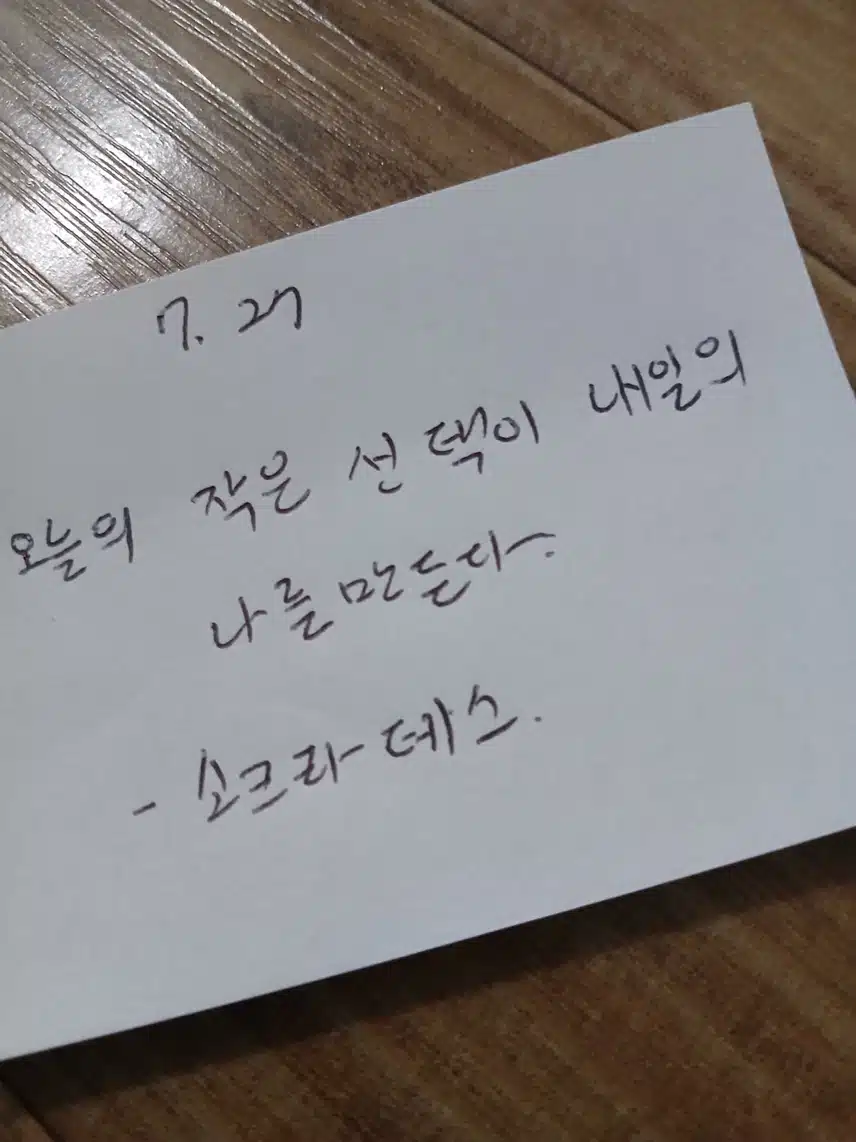 7. 27
오늘의 작은 선택이 내일의
나를 만든다.
- 소크라테스.